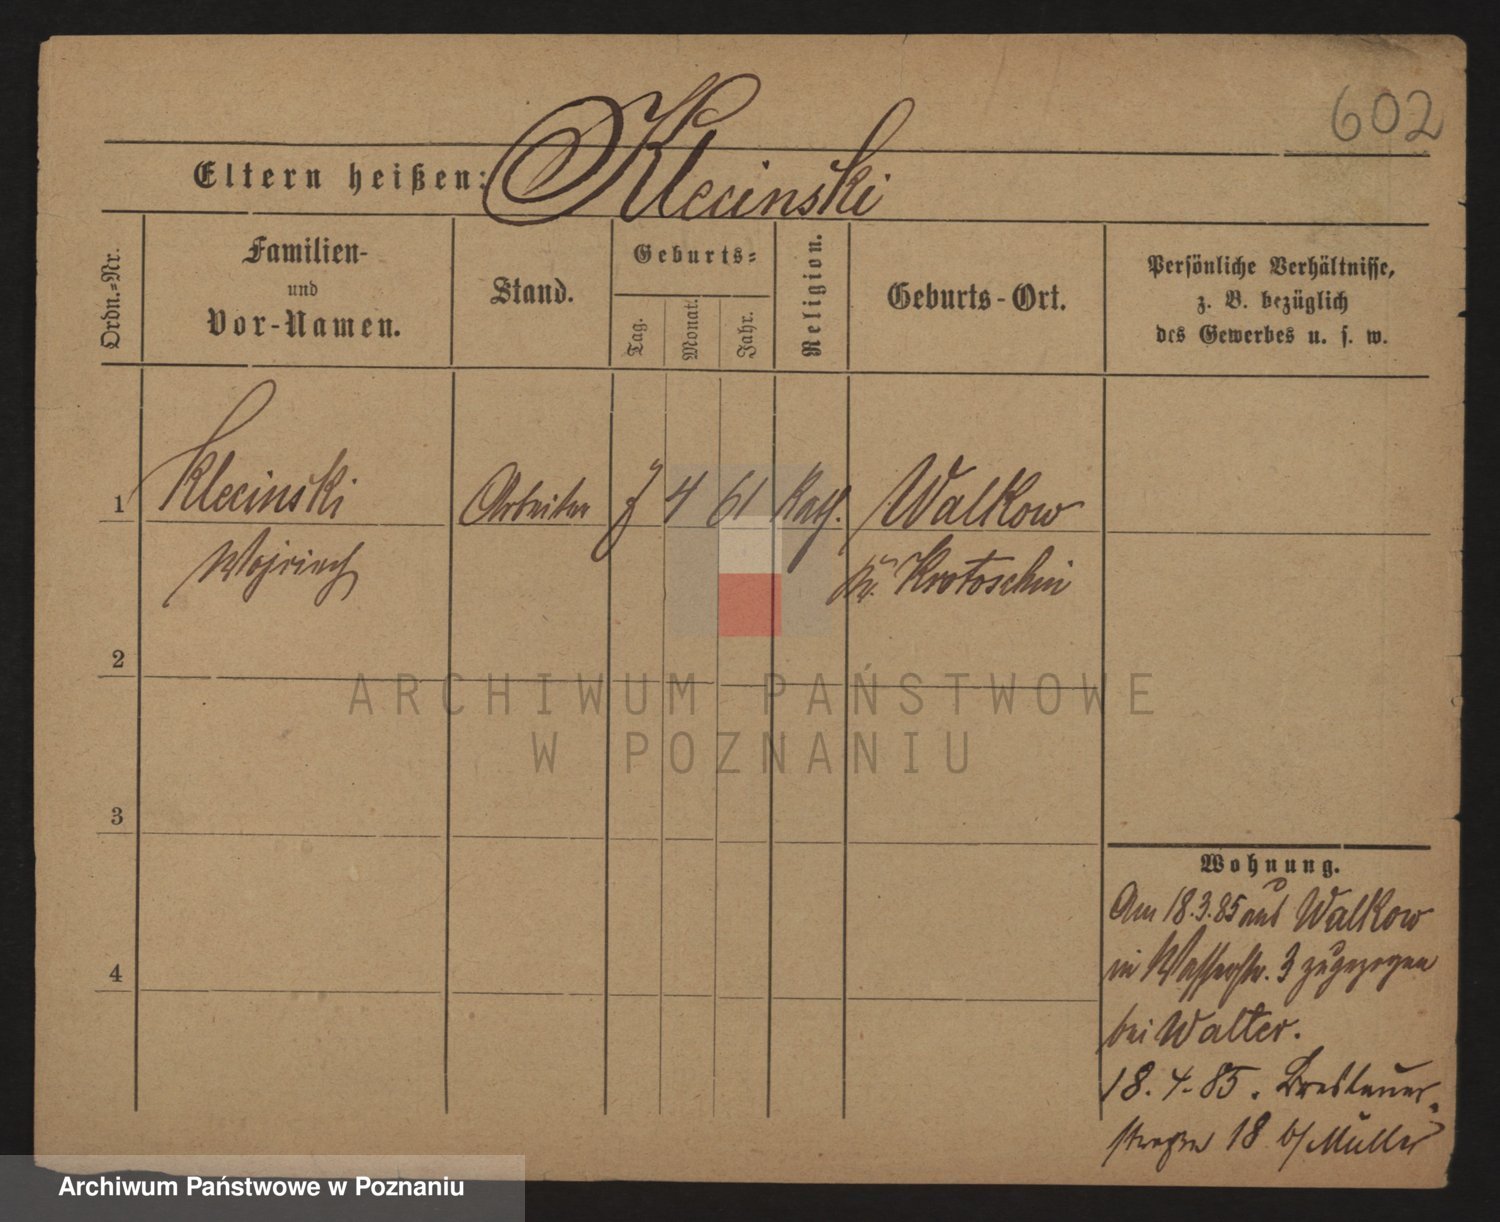 602
Eltern heißen: Klecinski
Ordn.=Nr.
Familien-
und
Vor-Namen.
Stand.
Geburts=
Tag.
Monat.
Jahr.
Religion.
Geburts-Ort.
Persönliche Verhältnisse,
z. B. bezüglich
des Gewerbes u. s. w.
1 Klecinski Arbeiter 7 4 61 Kath. Walkow
Wojciech Kr. Krotoschin
2
3
4
ARCHIWUM PAŃSTWOWE
W POZNANIU
Wohnung.
Am 18.3.85 aus Walkow
in Wasserstr. 3 zugezogen
bei Walter.
18.4.85. Breslauer-
straße 18 b/Müller
Archiwum Państwowe w Poznaniu